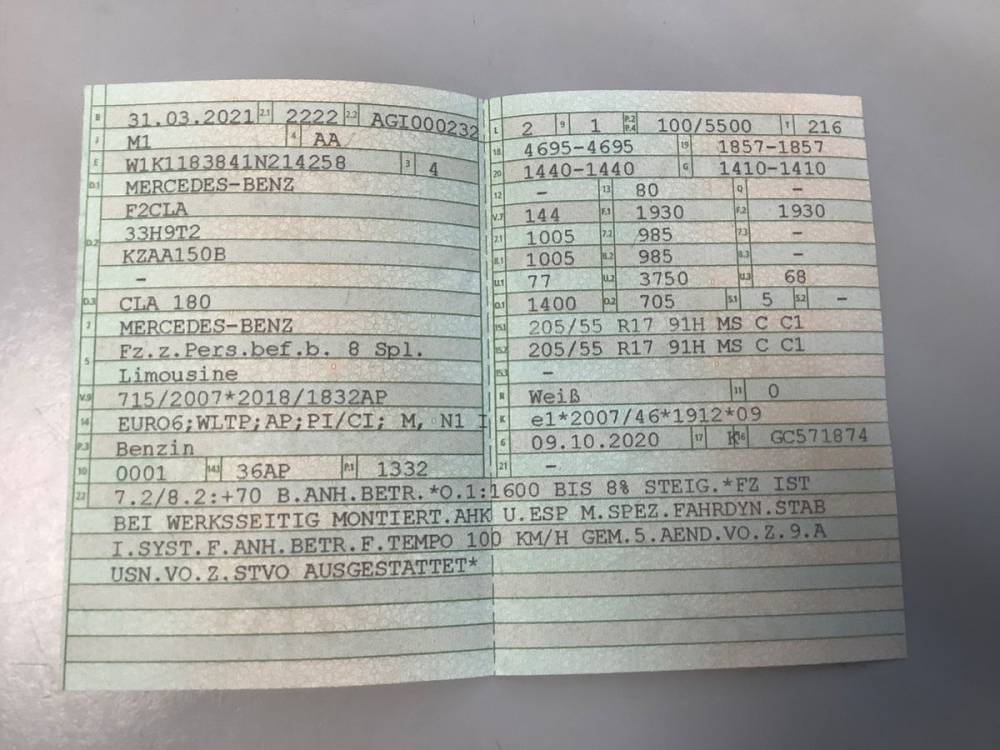 B 31.03.2021 2.1 2222 2.2 AGI000232
J M1 4 AA
E W1K1183841N214258 3 4
D.1 MERCEDES-BENZ
F2CLA
33H9T2
D.2 KZAA150B
-
D.3 CLA 180
2 MERCEDES-BENZ
5 Fz.z.Pers.bef.b. 8 Spl.
Limousine
V.9 715/2007*2018/1832AP
14 EURO6;WLTP;AP;PI/CI; M, N1 I
P.3 Benzin
10 0001 14.1 36AP P.1 1332
L 2 9 1 P.2 P.4 100/5500 T 216
18 4695-4695 19 1857-1857
20 1440-1440 G 1410-1410
12 - 13 80 Q -
V.7 144 F.1 1930 F.2 1930
7.1 1005 7.2 985 7.3 -
8.1 1005 8.2 985 8.3 -
U.1 77 U.2 3750 U.3 68
O.1 1400 O.2 705 S.1 5 S.2 -
15.1 205/55 R17 91H MS C C1
15.2 205/55 R17 91H MS C C1
15.3 -
R Weiß 11 0
K e1*2007/46*1912*09
6 09.10.2020 17 K 16 GC571874
21 -
22 7.2/8.2:+70 B.ANH.BETR.*O.1:1600 BIS 8% STEIG.*FZ IST
BEI WERKSSEITIG MONTIERT.AHK U.ESP M.SPEZ.FAHRDYN.STAB
I.SYST.F.ANH.BETR.F.TEMPO 100 KM/H GEM.5.AEND.VO.Z.9.A
USN.VO.Z.STVO AUSGESTATTET*